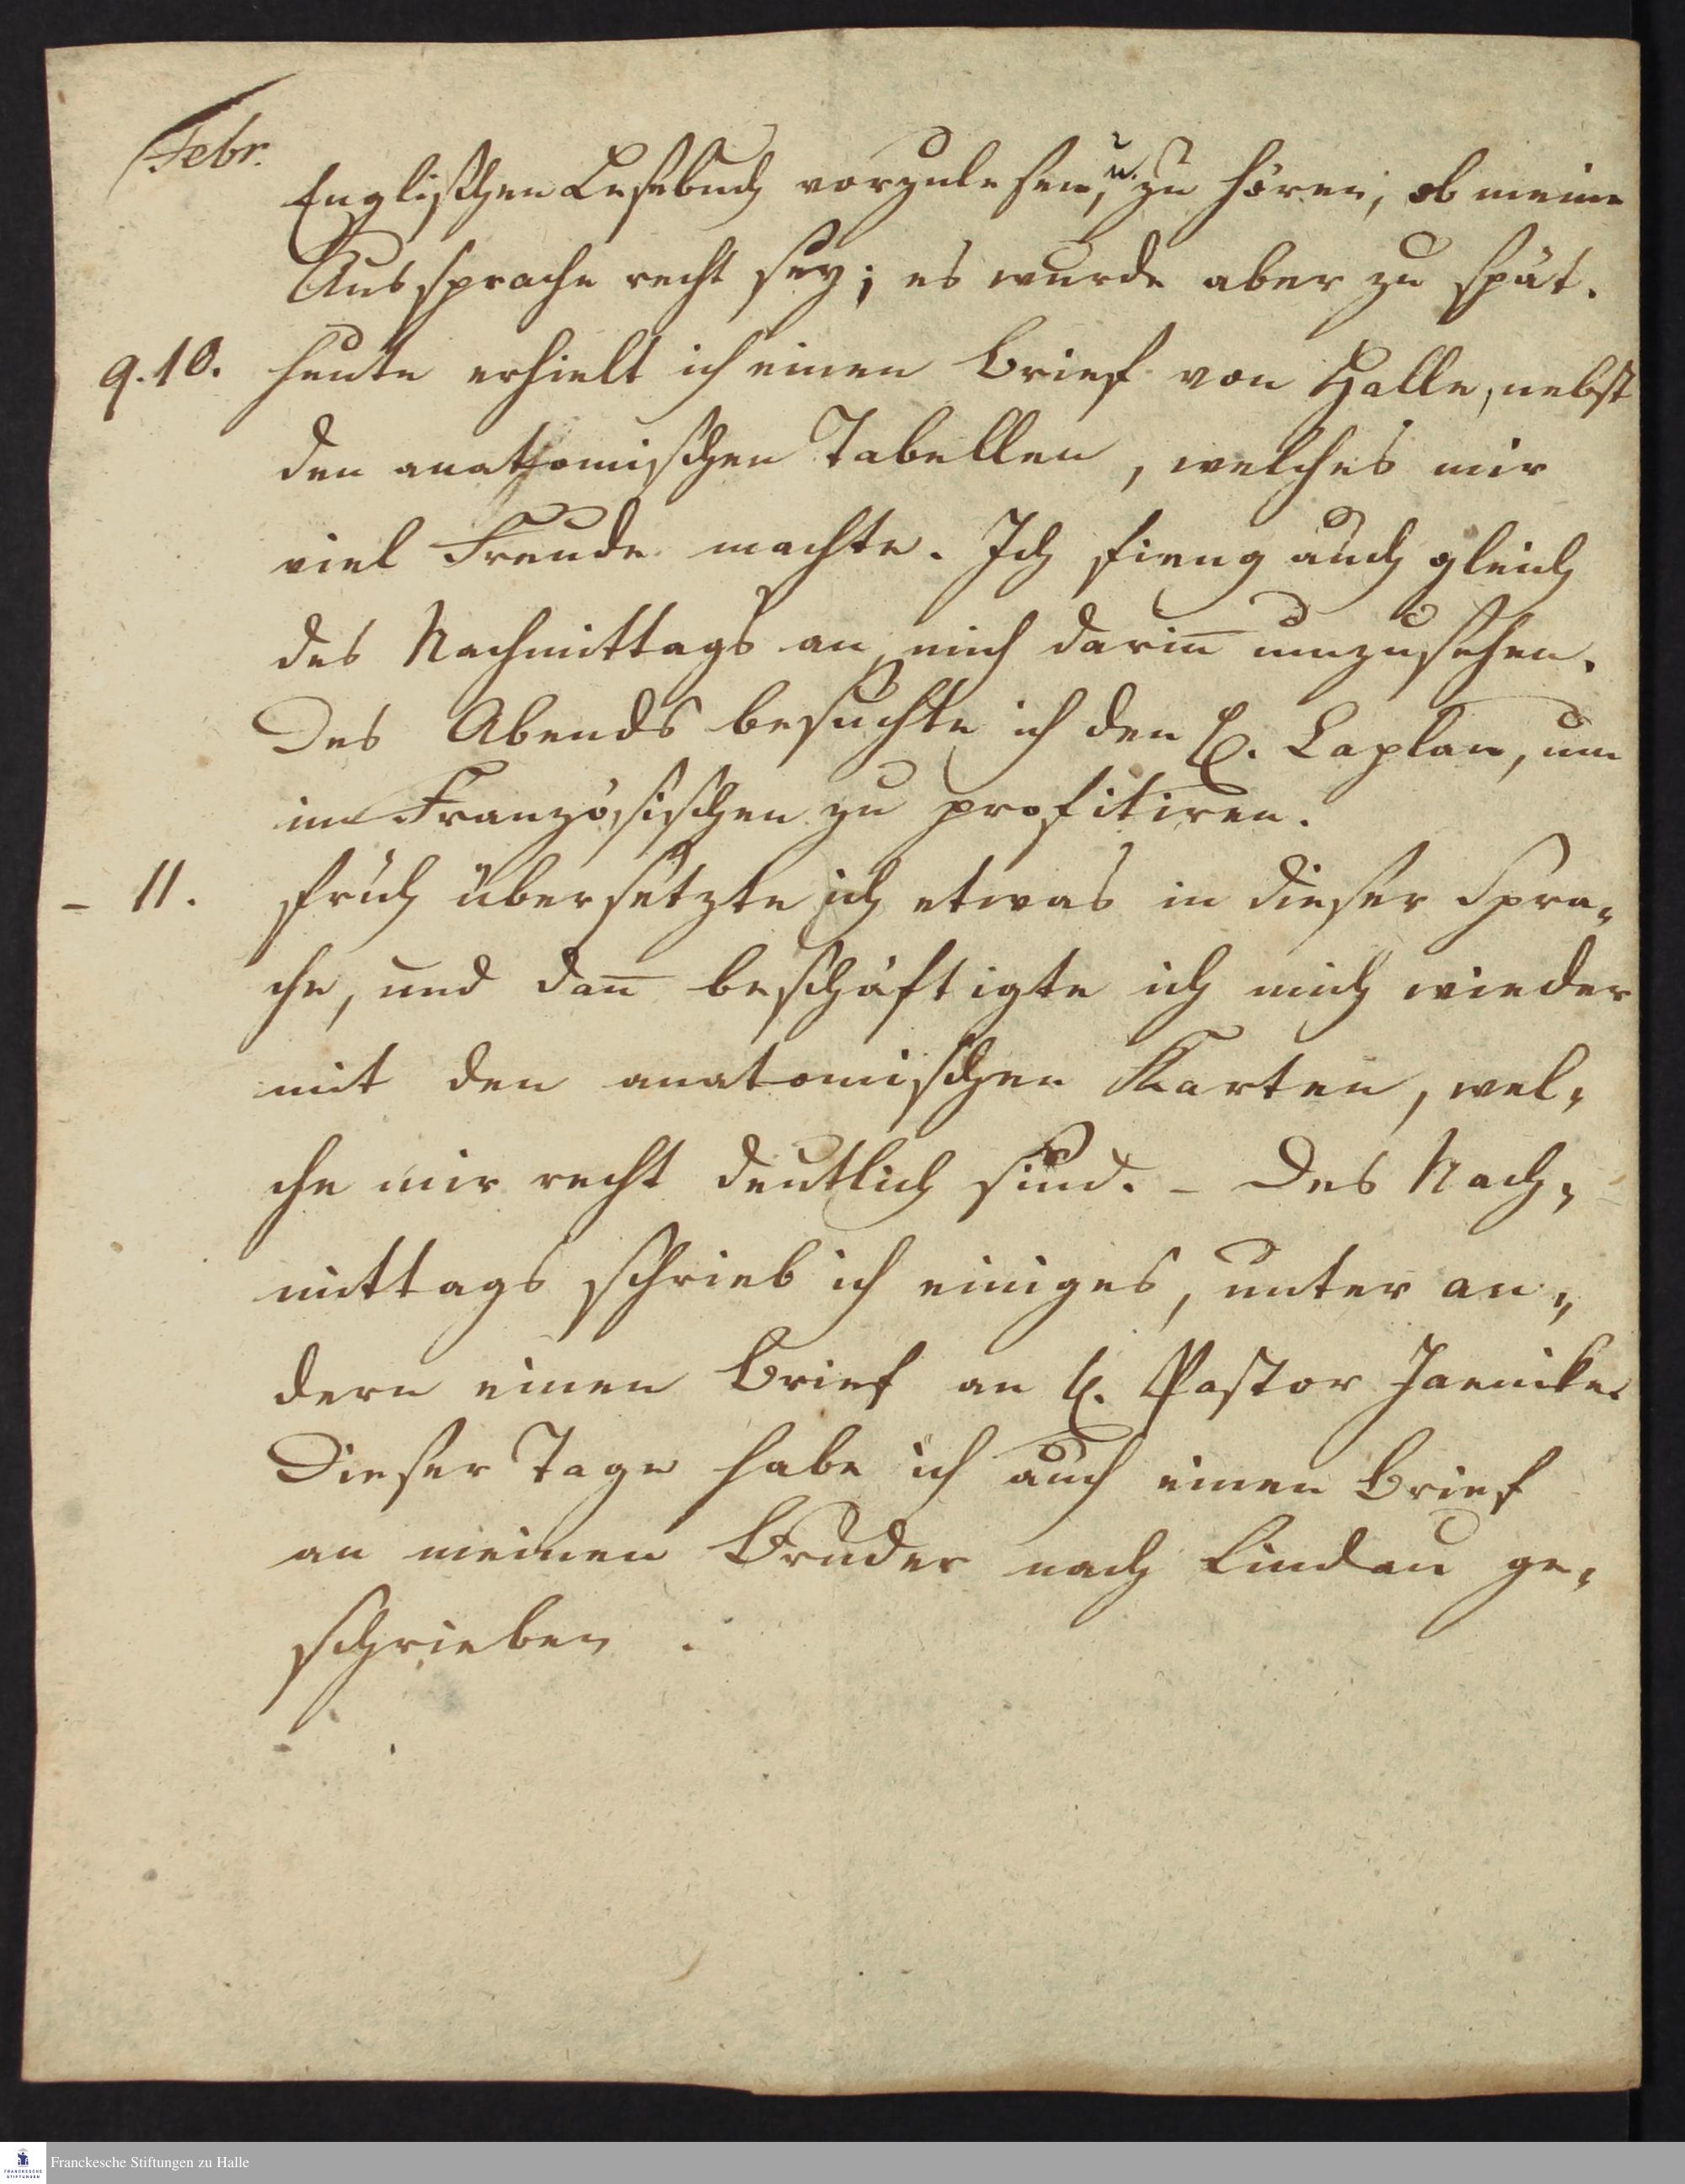 Febr.
Englischen Lesebuch vorzulesen, u. zu hören, ob meine
Aussprache recht sey; es wurde aber zu spät.
9. 10. Heute erhielt ich einen Brief von Halle, nebst
den anathomischen Tabellen, welches mir
viel Freude machte. Ich fieng auch gleich
des Nachmittags an, mich darin̅ umzusehen.
Des Abends besuchte ich den H. Laplan, um
im Französischen zu profitiren.
– 11. Früh übersetzte ich etwas in dieser Spra-
che, und dan̅ beschäftigte ich mich wieder
mit den anatomischen Karten, wel-
che mir recht deutlich sind. – Des Nach-
mittags schrieb ich einiges, unter an-
dern einen Brief an H. Pastor Jaenike.
Dieser Tage habe ich auch einen Brief
an meinen Bruder nach Lindau ge-
schrieben.
Franckesche Stiftungen zu Halle
FRANCKESCHE
STIFTUNGEN